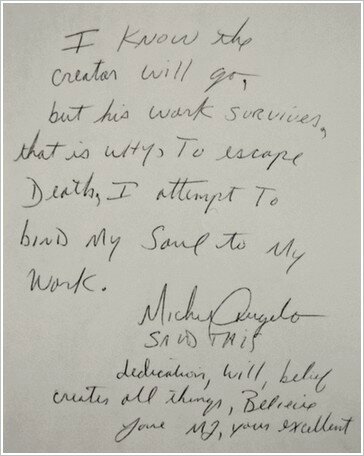 I KNOW the
creator will go,
but his work survives,
that is why, To escape
Death, I attempt To
bind My Soul to My
Work.
Michel Angelo
SAID THIS
dedication, will, belief
creates all things, Believe
MJ, your excellent